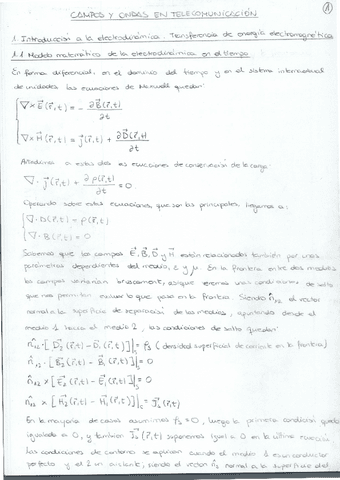 ①
CAMPOS Y ONDAS EN TELECOMUNICACIÓN
1. Introducción a la electrodinámica. Transferencia de energía electromagnética
1.1 Modelo matemático de la electrodinámica en el tiempo
En forma diferencial, en el dominio del tiempo y en el sistema internacional
de unidades las ecuaciones de Maxwell quedan:
∇×E⃗(r⃗,t) = - ∂B⃗(r⃗,t)/∂t
∇×H⃗(r⃗,t) = j⃗(r⃗,t) + ∂D⃗(r⃗,t)/∂t
a estas dos las ecuaciones de conservación de la carga:
∇·j⃗(r⃗,t) + ∂ρ(r⃗,t)/∂t = 0
Operando sobre estas ecuaciones, que son las principales, llegamos a:
∇·D(r⃗,t) = ρ(r⃗,t)
∇·B(r⃗,t) = 0
Sabemos que los campos E⃗, B⃗, D⃗ y H⃗ están relacionados también por unos
parámetros dependientes del medio, ε y μ. En la frontera entre dos medios
los campos variarían bruscamente, así que veremos unas condiciones de salto
que nos permitan evaluar lo que pasa en la frontera. Siendo n̂₁₂ el vector
normal a la superficie de separación de los medios, apuntando desde el
medio 1 hacia el medio 2, las condiciones de salto quedan:
n̂₁₂·[D⃗₂(r⃗,t) - D⃗₁(r⃗,t)]|s = ρs (densidad superficial de corriente en la frontera)
n̂₁₂·[B⃗₂(r⃗,t) - B⃗₁(r⃗,t)]|s = 0
n̂₁₂ × [E⃗₂(r⃗,t) - E⃗₁(r⃗,t)]|s = 0
n̂₁₂ × [H⃗₂(r⃗,t) - H⃗₁(r⃗,t)]|s = J⃗s(r⃗,t)
En la mayoría de casos asumimos ρs = 0, luego la primera condición queda
igualada a 0, y también Js(r⃗,t) suponemos igual a 0 en la última ecuación.
Las condiciones de contorno se aplican cuando el medio 1 es un conductor
perfecto y el 2 un aislante, siendo el vector n̂s normal a la superficie del